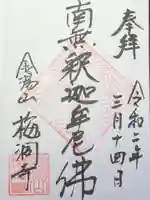 奉拝
令和二年
三月十四日
南無釈迦牟尼佛
金嶌山
梅洞寺